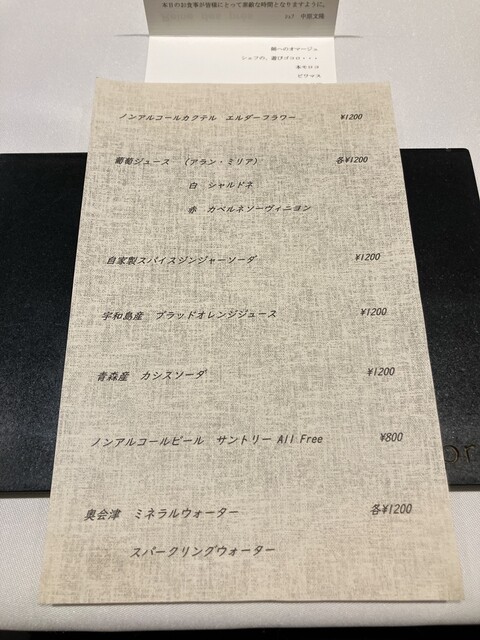 本日のお食事が皆様にとって素敵な時間となりますように。
師へのオマージュ
シェフの、遊びゴコロ・・・
本モロコ
ビワマス
ノンアルコールカクテル エルダーフラワー ¥1200
葡萄ジュース (アラン・ミリア) 各¥1200
白 シャルドネ
赤 カベルネソーヴィニヨン
自家製スパイスジンジャーソーダ ¥1200
宇和島産 ブラッドオレンジジュース ¥1200
青森産 カシスソーダ ¥1200
ノンアルコールビール サントリー All Free ¥800
奥会津 ミネラルウォーター 各¥1200
スパークリングウォーター